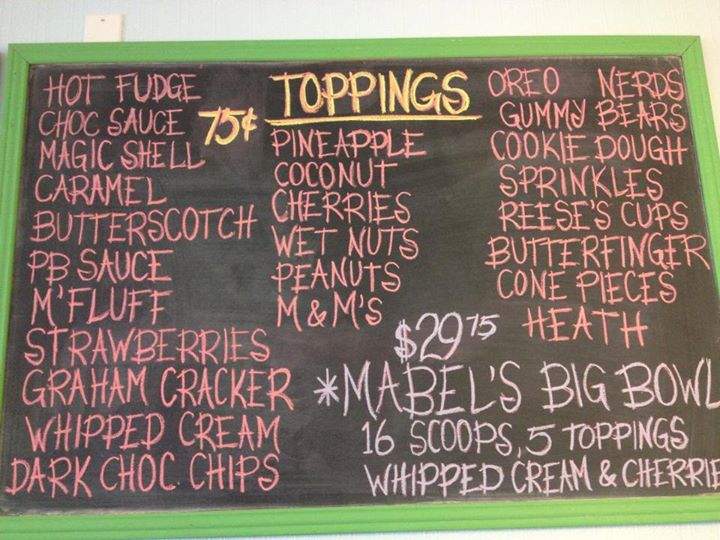 TOPPINGS
75¢
HOT FUDGE
CHOC SAUCE
MAGIC SHELL
CARAMEL
BUTTERSCOTCH
PB SAUCE
M'FLUFF
STRAWBERRIES
GRAHAM CRACKER
WHIPPED CREAM
DARK CHOC CHIPS
PINEAPPLE
COCONUT
CHERRIES
WET NUTS
PEANUTS
M&M'S
OREO NERDS
GUMMY BEARS
COOKIE DOUGH
SPRINKLES
REESE'S CUPS
BUTTERFINGER
CONE PIECES
HEATH
$29.75
*MABEL'S BIG BOWL
16 SCOOPS, 5 TOPPINGS
WHIPPED CREAM & CHERRIE